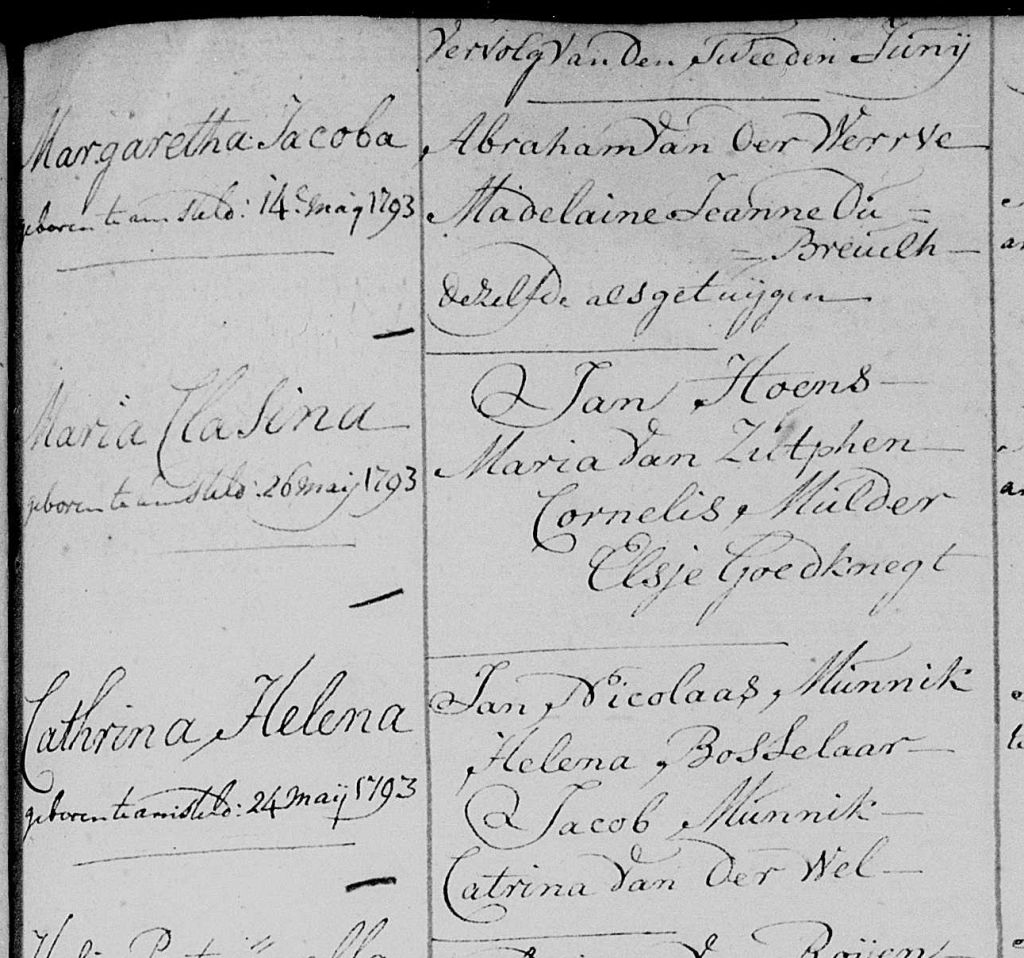 Vervolg Van Den Tweeden Junij
Margaretha Jacoba
geboren te amsteld: 14 Maij 1793
Abraham Van Der Werrve
Madelaine Jeanne Du =
= Breuilh
dezelfde als getuijgen
Maria Clasina
geboren te amsteld: 26 Maij 1793
Jan Hoens
Maria Van Zutphen
Cornelis Mulder
Elsje Goedknegt
Cathrina Helena
geboren te amsteld: 24 Maij 1793
Jan Nicolaas Munnik
Helena Bosselaar
Jacob Munnik
Catrina Van Der Wel